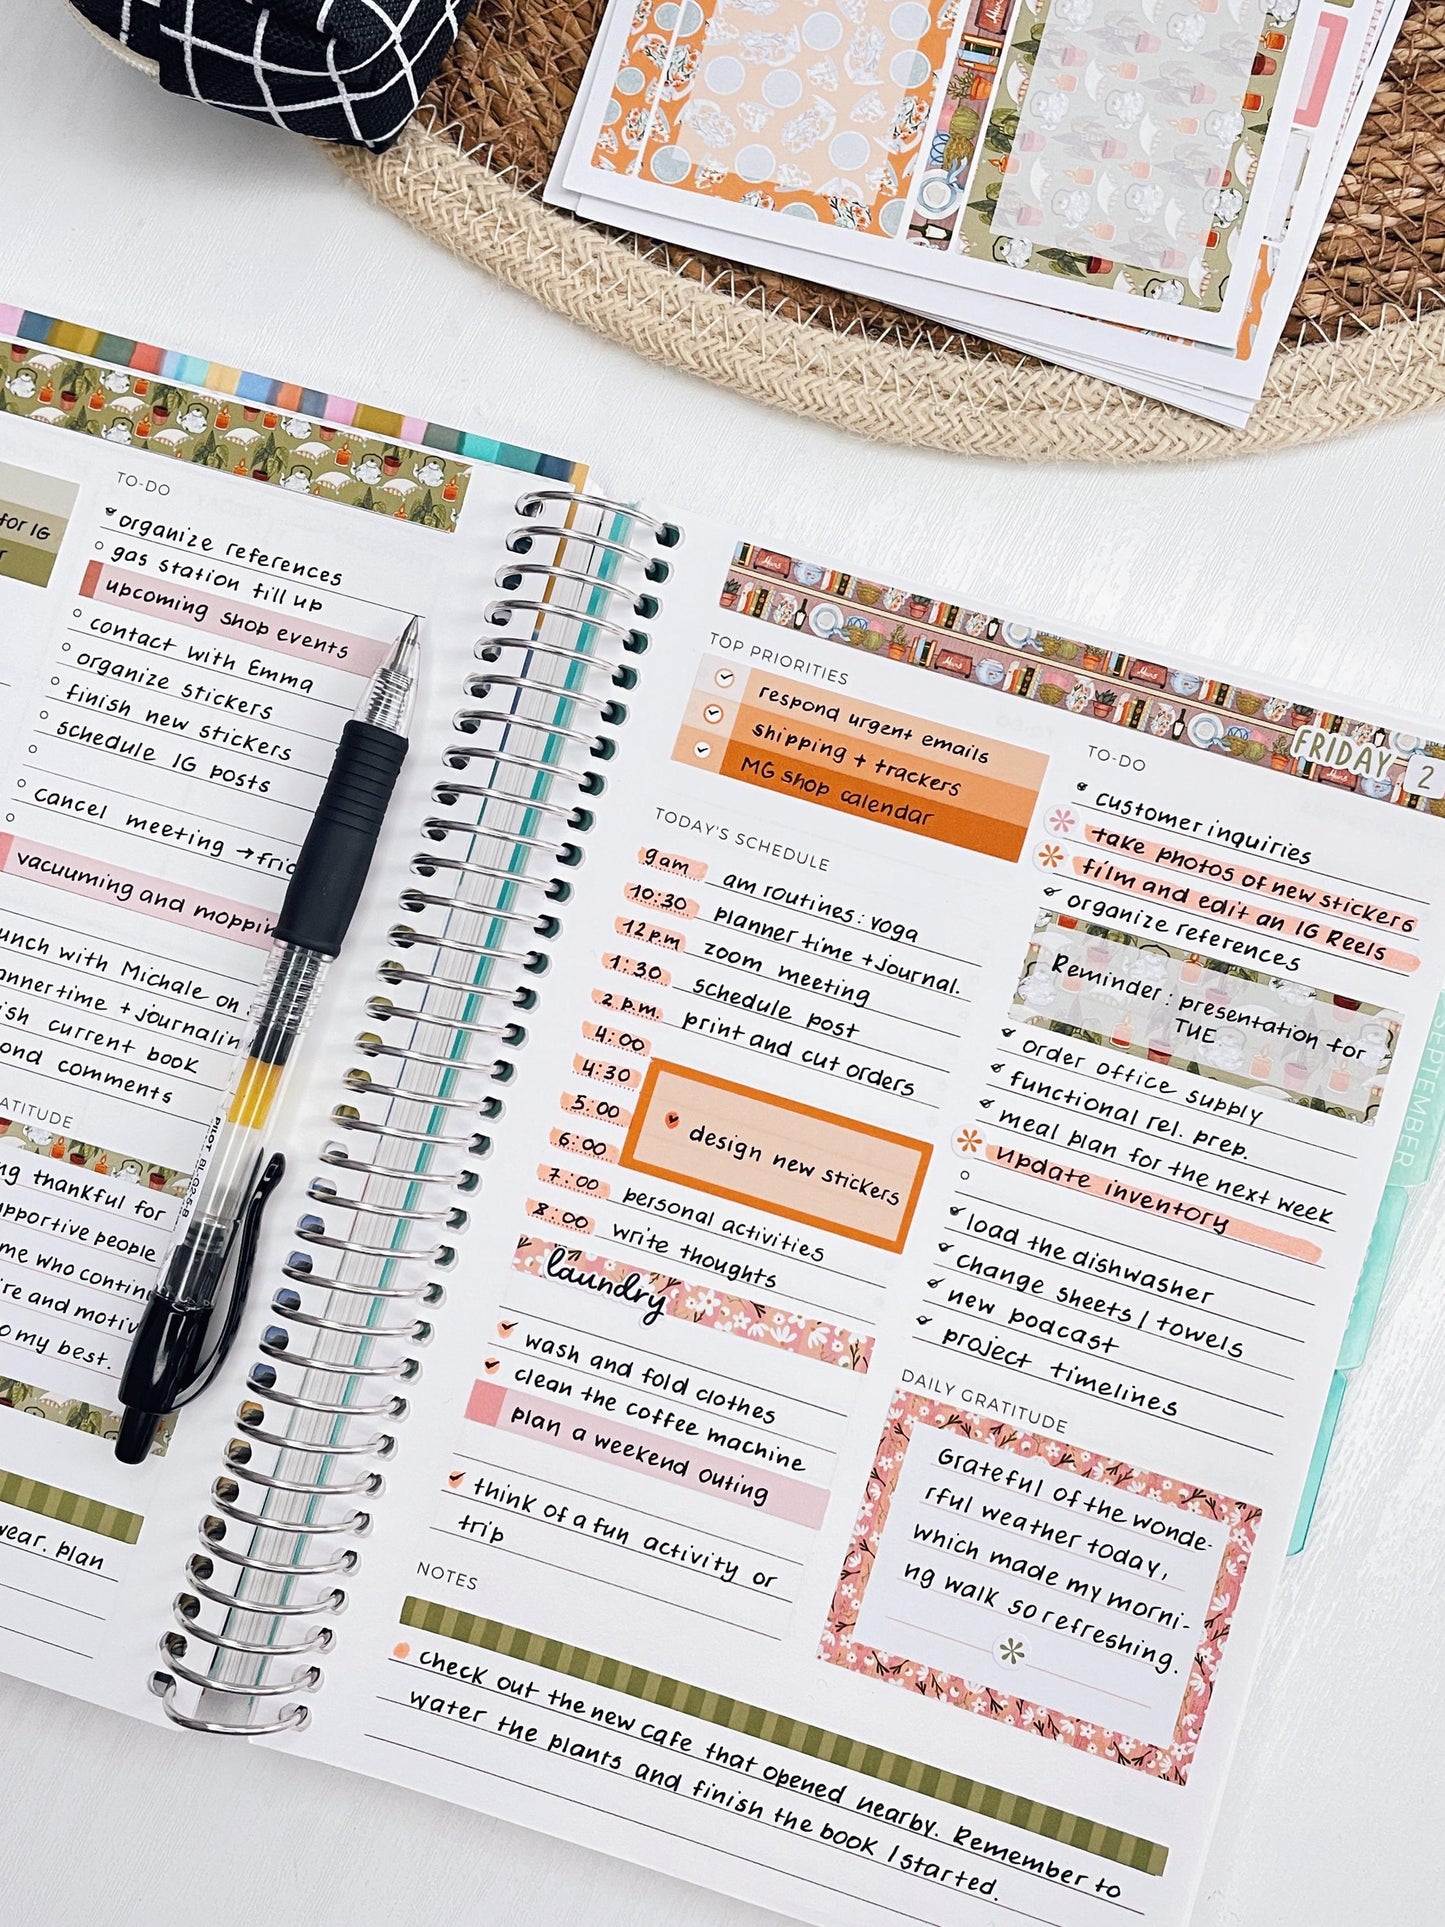 for IG
TO-DO
organize references
gas station fill up
upcoming shop events
contact with Emma
organize stickers
finish new stickers
schedule IG posts
cancel meeting →
vacuuming and
with Michale on
+ journalin
current book
comments
thankful for
people
me who
and
my best.
wear. plan
PILOT BL-G2-5-B
FRIDAY 2
TOP PRIORITIES
respond urgent emails
shipping + trackers
MG shop calendar
TODAY'S SCHEDULE
9am am routines: yoga
10:30 planner time + journal.
12 p.m zoom meeting
1:30 schedule post
2 p.m. print and cut orders
4:00
4:30
5:00 design new stickers
6:00
7:00 personal activities
8:00 write thoughts
laundry
wash and fold clothes
clean the coffee machine
plan a weekend outing
think of a fun activity or
trip
TO-DO
customer inquiries
take photos of new stickers
film and edit an IG Reels
organize references
Reminder: presentation for
TUE
order office supply
functional rel. prep.
meal plan for the next week
update inventory
load the dishwasher
change sheets / towels
new podcast
project timelines
DAILY GRATITUDE
Grateful of the wonde-
rful weather today,
which made my morni-
ng walk so refreshing.
NOTES
check out the new cafe that opened nearby. Remember to
water the plants and finish the book I started.
SEPTEMBER